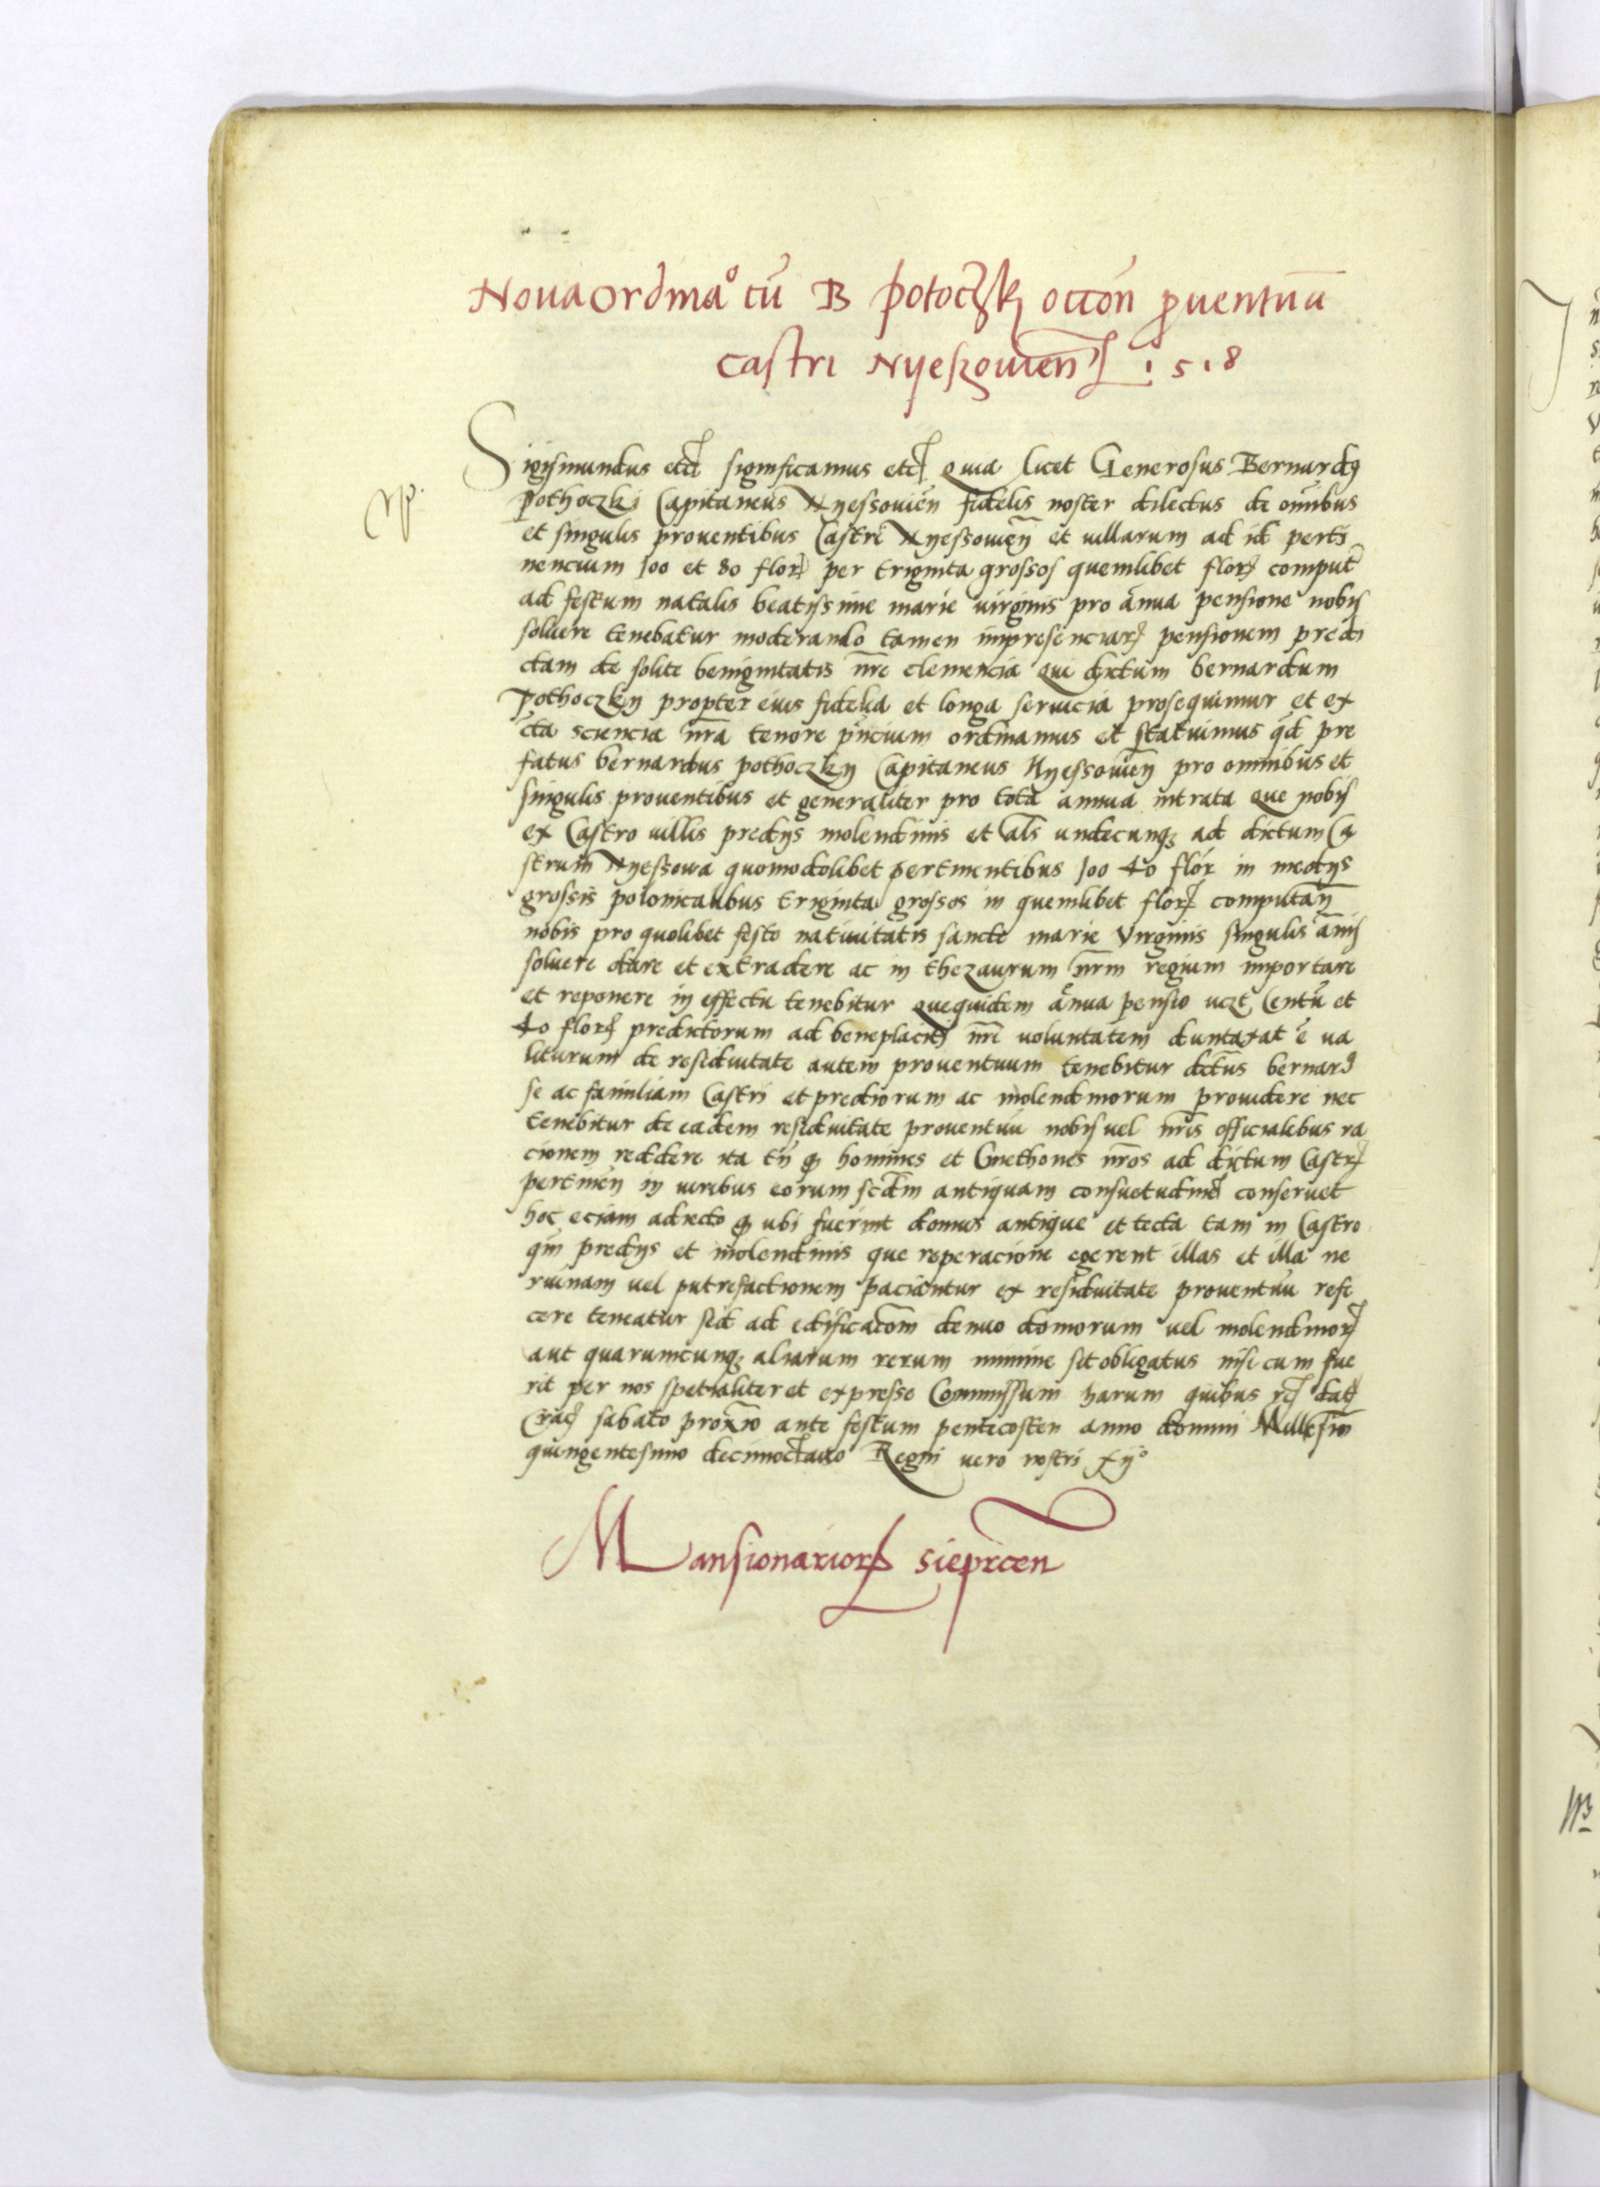 Nova ordina° cū B potoczk occōn proventuū
castri Nyeszovien 1518
Sigismundus etc significamus etc Quia licet Generosus Bernardus
pothoczki Capitaneus Nyessovien fidelis noster dilectus de omībus
et singulis proventibus Castri Nyessovien et villarum ad id perti
nencium 100 et 80 flor per triginta grossos quemlibet flor comput
ad festum natalis beatissime marie virginis pro ānua pensione nobis
soluere tenebatur moderando tamen impresenciar pensionem predi
ctam de solite benignitatis nre clemencia que dictum bernardum
Pothoczky propter eius fidelia et longa servicia prosequimur et ex
cta sciencia nra tenore pñcium ordinamus et statuimus qd pre
fatus bernardus pothoczky Capitaneus Nyessovien pro omnibus et
singulis proventibus et generaliter pro tota annua intrata que nobis
ex Castro villis predys molendinis et als undecunq ad dictum Ca
strum Nyessowa quomodolibet pertinentibus 100 40 flor in medys
grossis polonicalibus triginta grossos in quemlibet flor computan
nobis pro quolibet festo nativitatis sancte marie Virginis singulis ānis
soluere dare et extradere ac in thezaurum nrm regium importare
et reponere in effectu tenebitur quequidem ānua pensio vczt Centū et
40 flor predictorum ad beneplacit nre voluntatem duntaxat ē va
liturum de residuitate autem proventuum tenebitur dictus bernard
se ac familiam Castri et prediorum ac molendinorum providere nec
tenebitur de eadem residuitate proventuū nobis vel nris officialibus ra
cionem reddere ita tn q homines et Cmethones nros ad dictum Castr
pertinen in iuribus eorum scdm antiquam consuetudine conservet
hoc eciam adiecto q ubi fuerint domus antique et tecta tam in Castro
qm predys et molendinis que reperacione egerent illas et illa ne
ruinam vel putrefactionem paciantur ex residuitate proventuū refi
cere teneatur sed ad edificacōm denuo domorum vel molendinor
aut quarumcunq aliarum rerum minime sit obligatus nisi cum fue
rit per nos spetialiter et expresse Commissum harum quibus rc dat
Crac sabato proximo ante festum pentecosten anno domini Millesimo
quingentesimo decimoctavo Regni vero nostri xij°
Mansionarior sieprcen